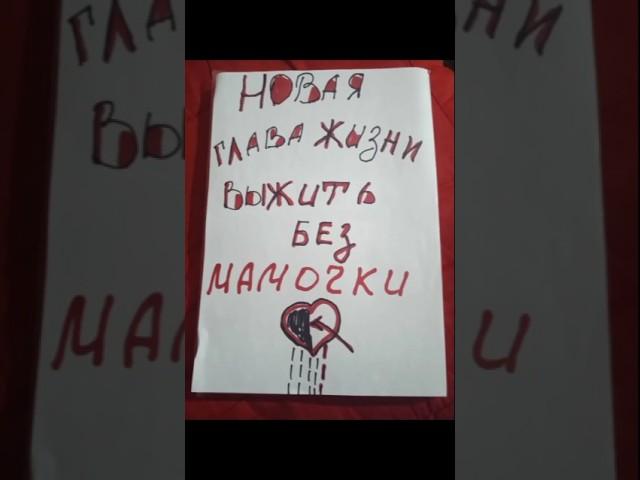 НОВАЯ
ГЛАВА ЖИЗНИ
ВЫЖИТЬ
БЕЗ
МАМОЧКИ